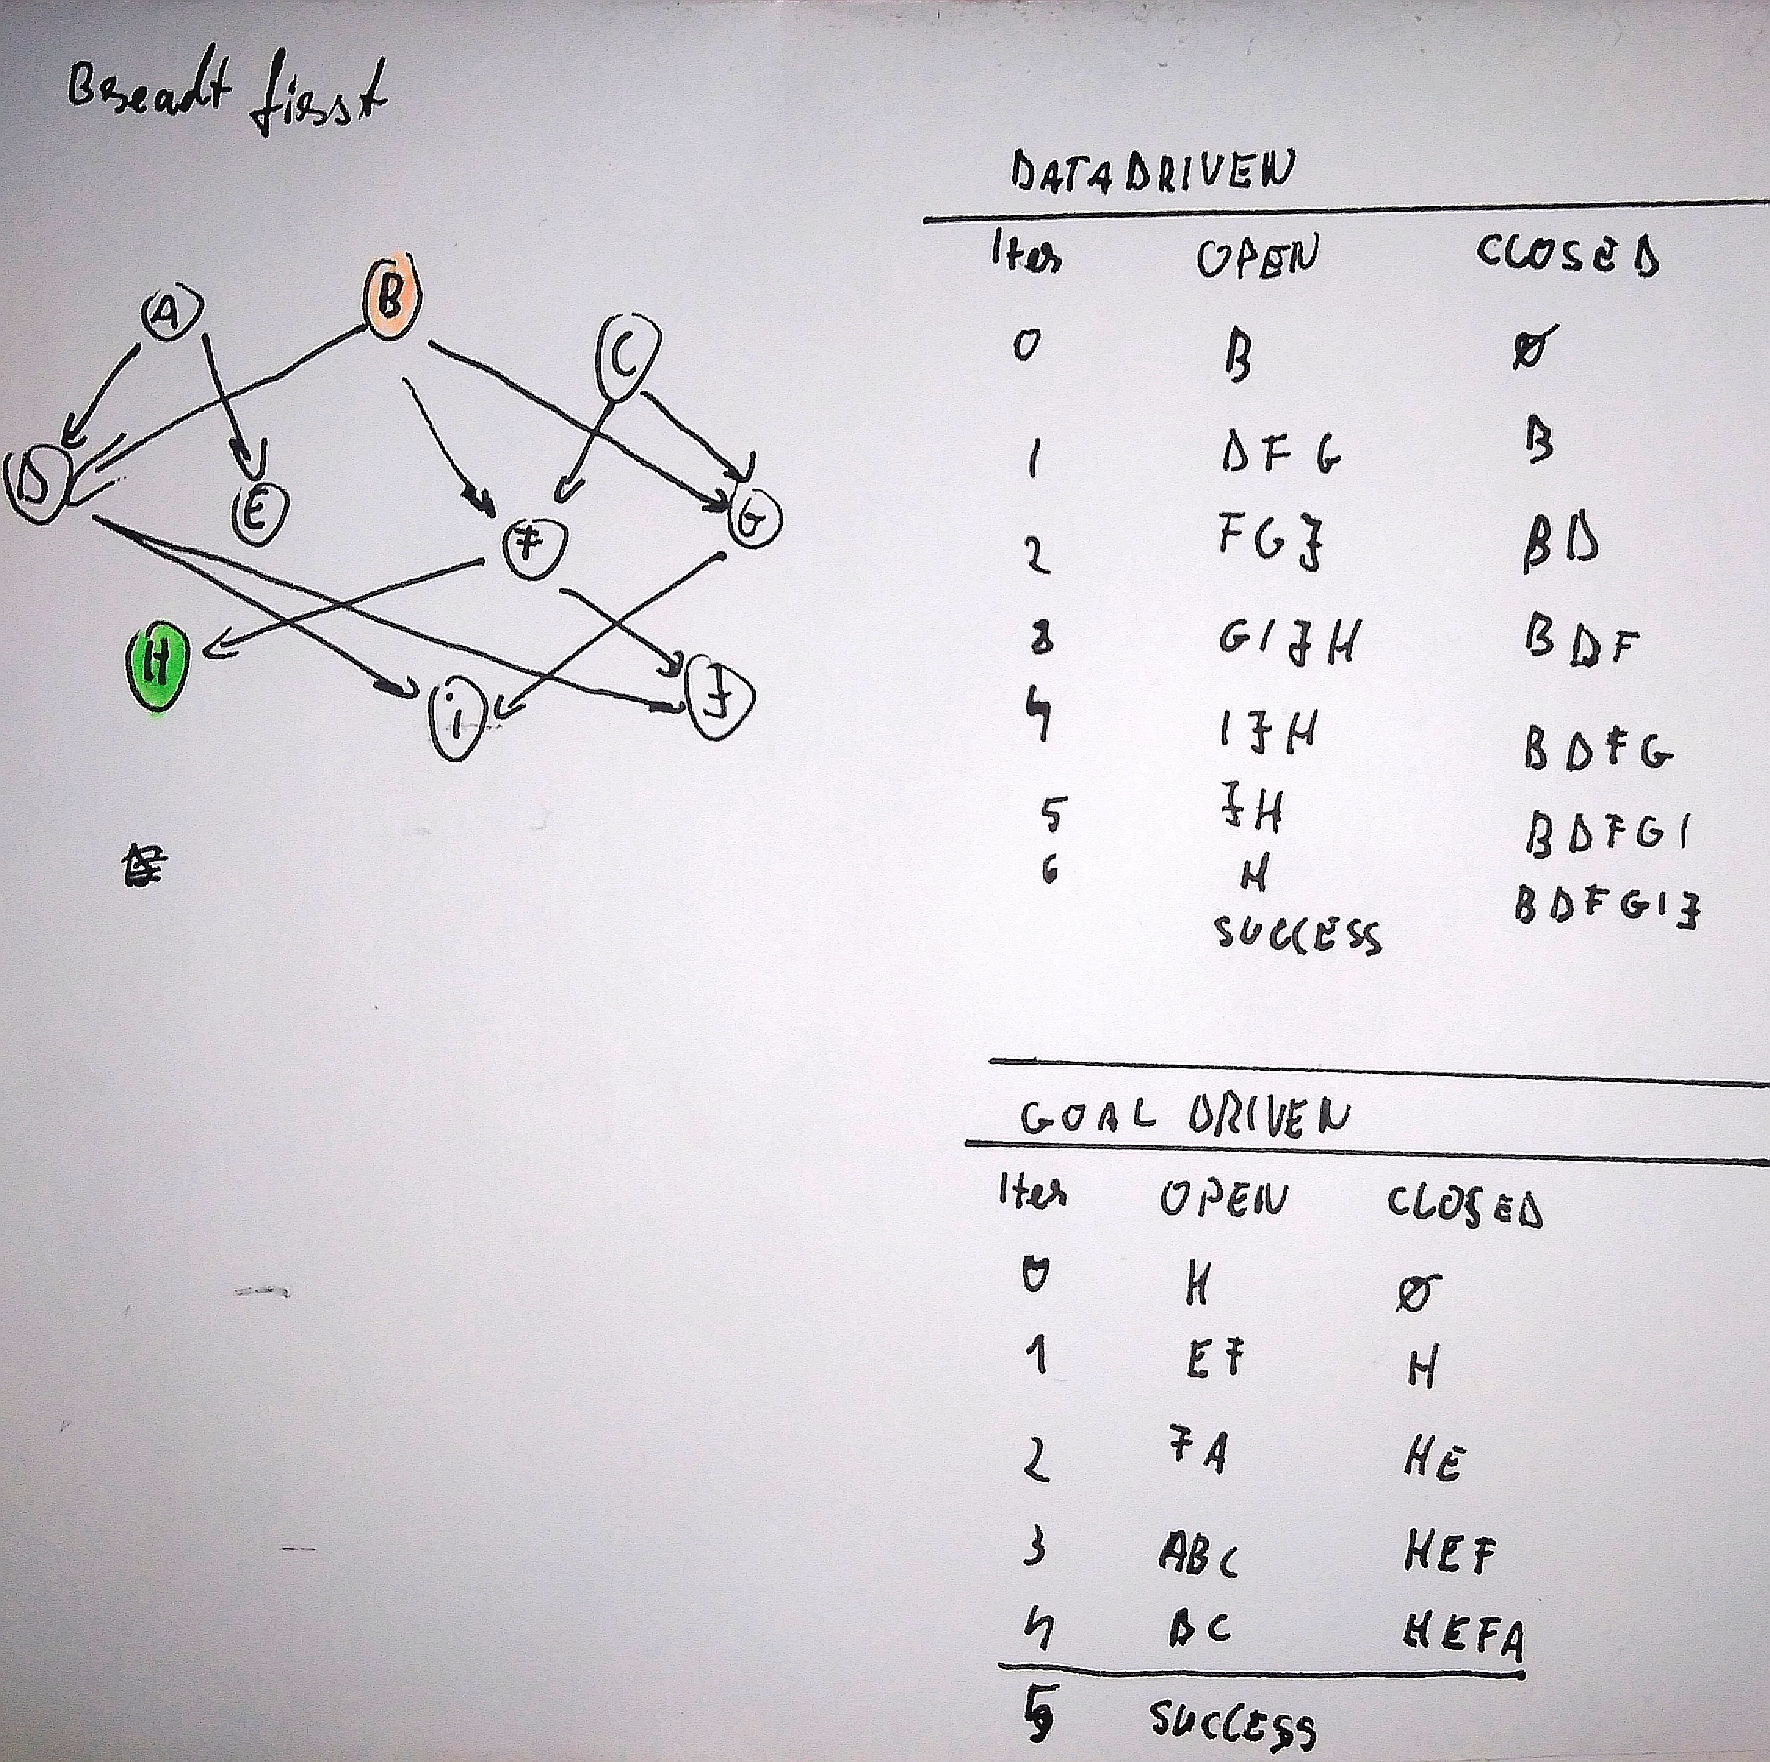 Breadt first
A
B
C
D
E
F
G
H
i
J
DATA DRIVEN
Iter OPEN CLOSED
0 B Ø
1 D F G B
2 F G J B D
3 G I J H B D F
4 I J H B D F G
5 J H B D F G I
6 H B D F G I J
SUCCESS
GOAL DRIVEN
Iter OPEN CLOSED
0 H Ø
1 E F H
2 F A H E
3 A B C H E F
4 B C H E F A
5 SUCCESS